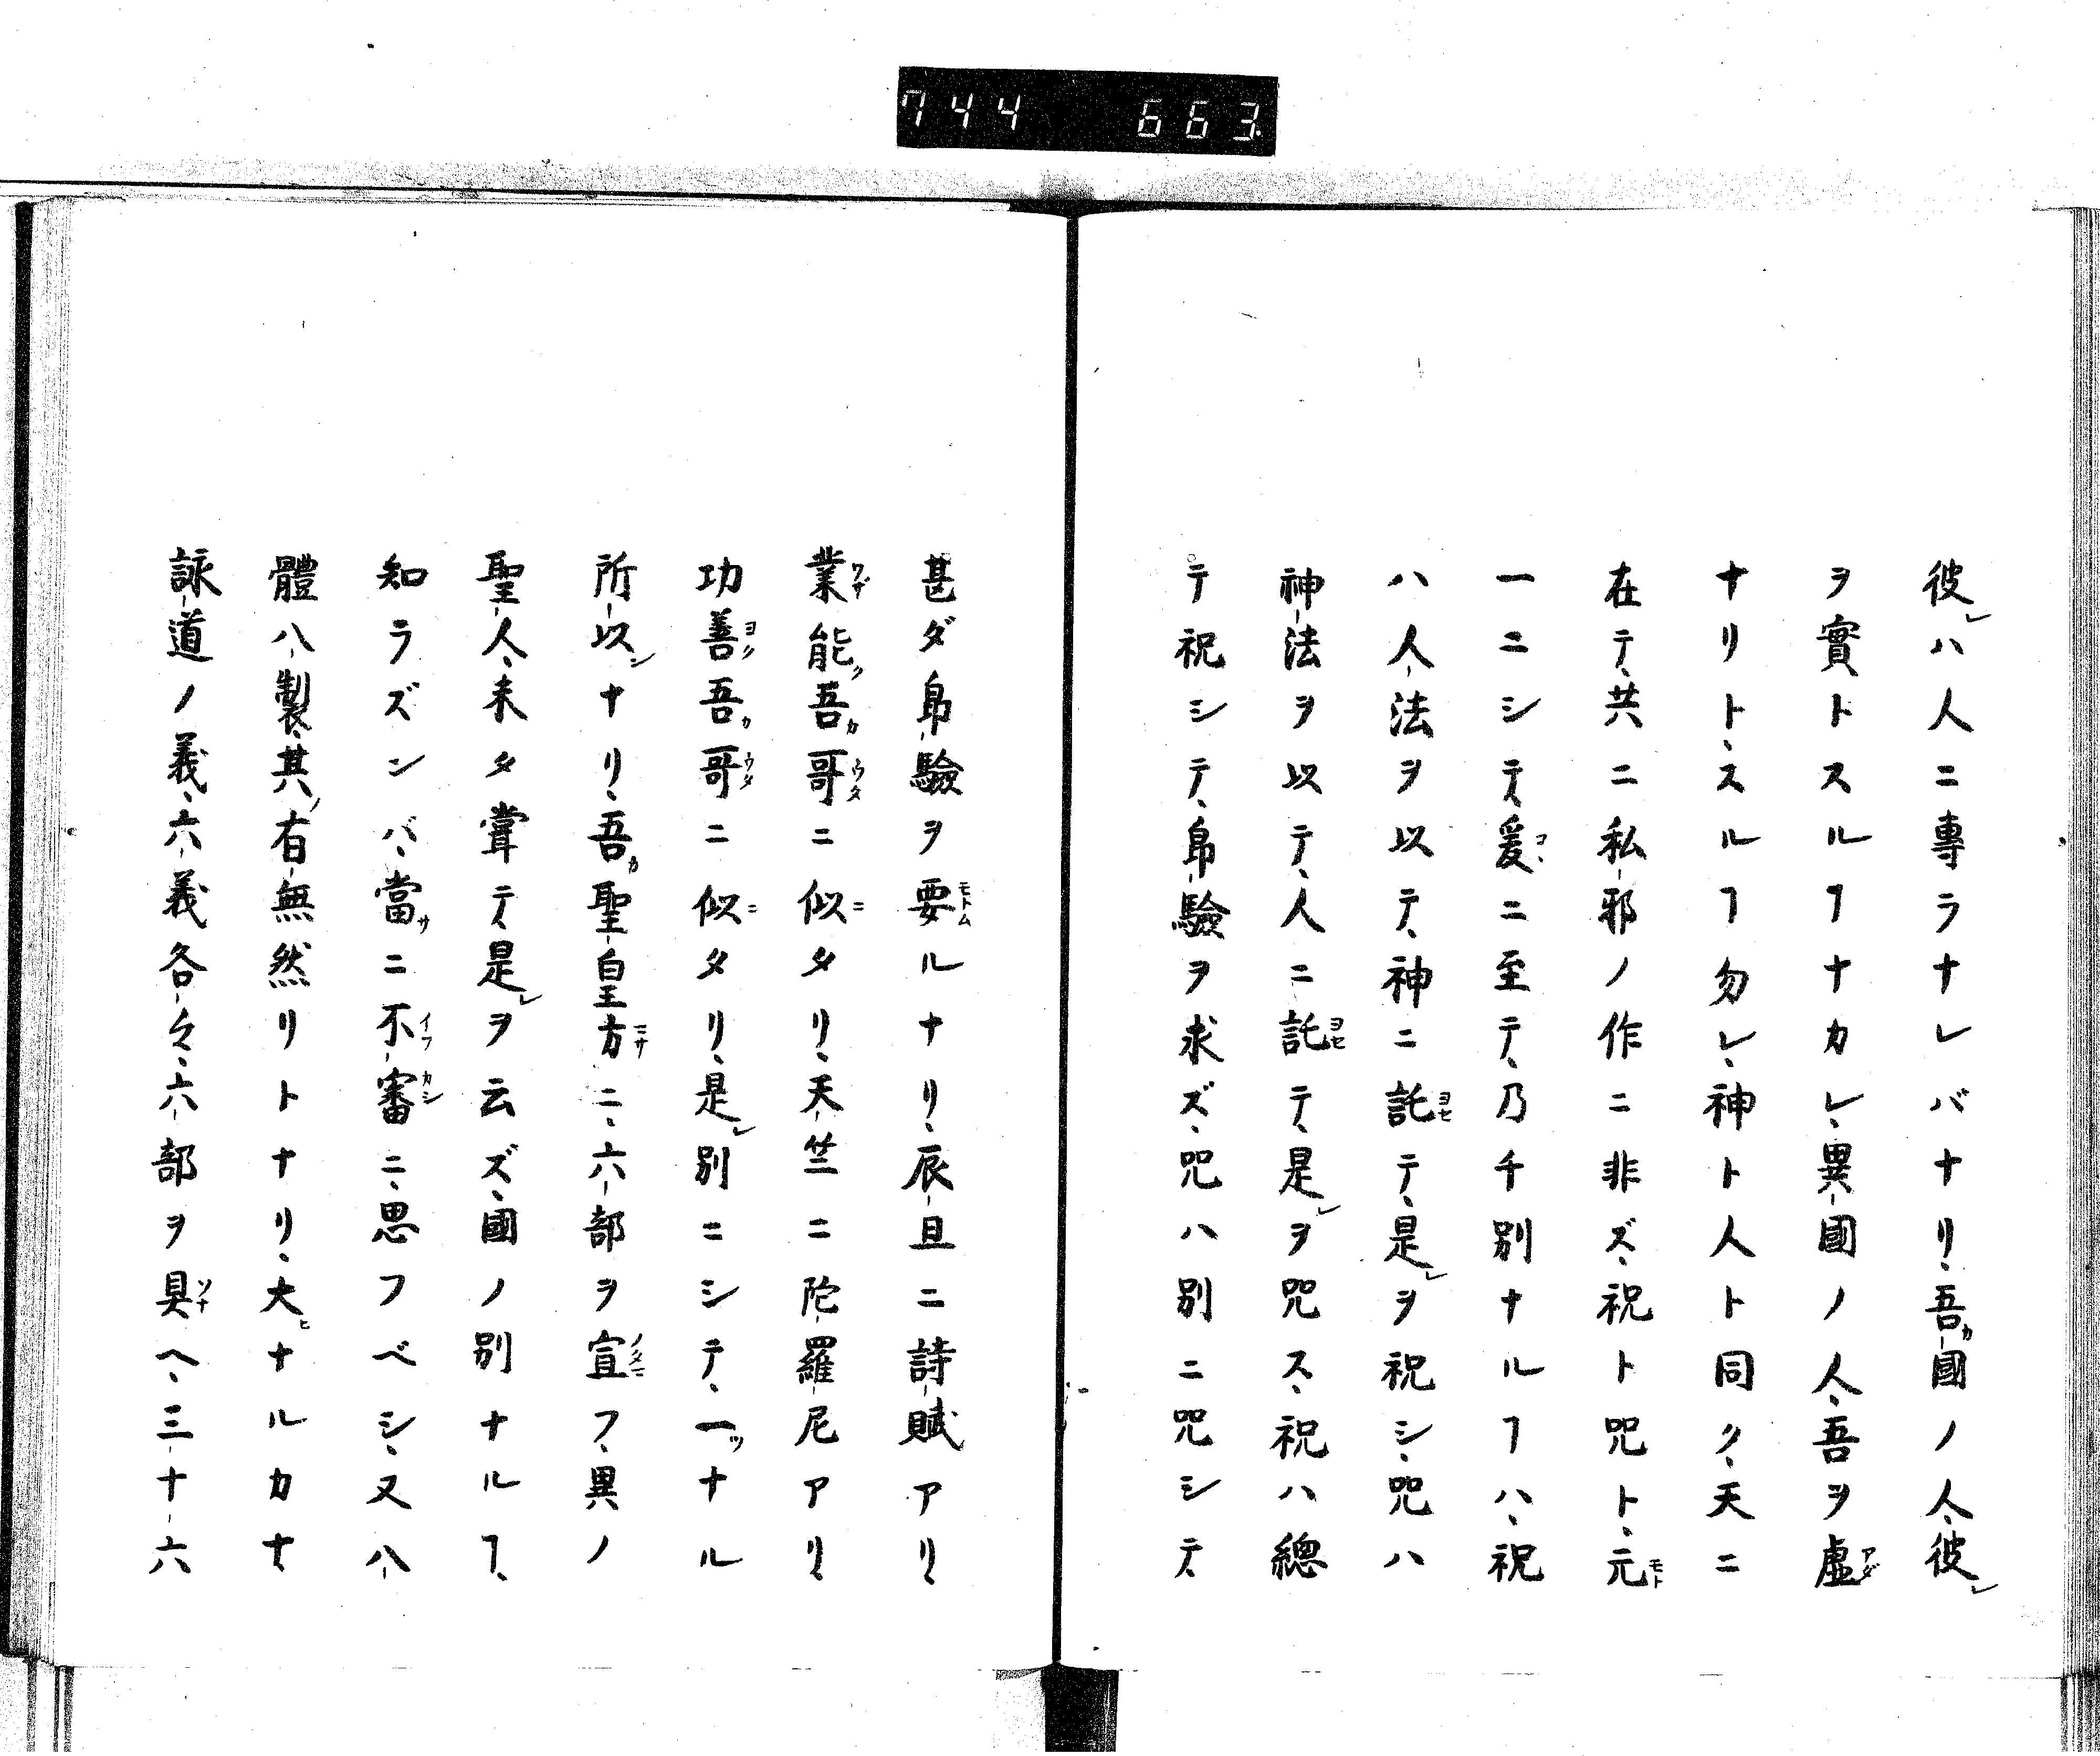 744 663.
彼レハ人ニ專ラナレバナリ、吾カ國ノ人、彼レ
ヲ實トスルヿナカレ、異國ノ人、吾ヲ虛
ナリト、スルヿ勿レ、神ト人ト同ク、天ニ
在テ、共ニ私邪ノ作ニ非ズ、祝ト咒ト、元
一ニシテ、爰ニ至テ、乃チ別ナルヿハ、祝
ハ人法ヲ以テ、神ニ託テ、是レヲ祝シ、咒ハ
神法ヲ以テ、人ニ託テ、是レヲ咒ス、祝ハ總
テ祝シテ、帛驗ヲ求ズ、咒ハ別ニ咒シテ、
甚ダ帛驗ヲ要ルナリ、辰旦ニ詩賦アリ、
業能ク吾カ哥ニ似タリ、天竺ニ陀羅尼アリ、
功善吾カ哥ニ似タリ、是レ別ニシテ、一ツナル
所以ナリ、吾カ聖皇方ニ、六部ヲ宣フ、異ノ
聖人、未タ甞テ、是レヲ云ズ、國ノ別ナルヿ、
知ラズンバ、當サニ不審ニ、思フベシ、又八
體八製、其ノ有無然リトナリ、大ヒナルカナ、
詠道ノ義、六義各々、六部ヲ具ヘ、三十六